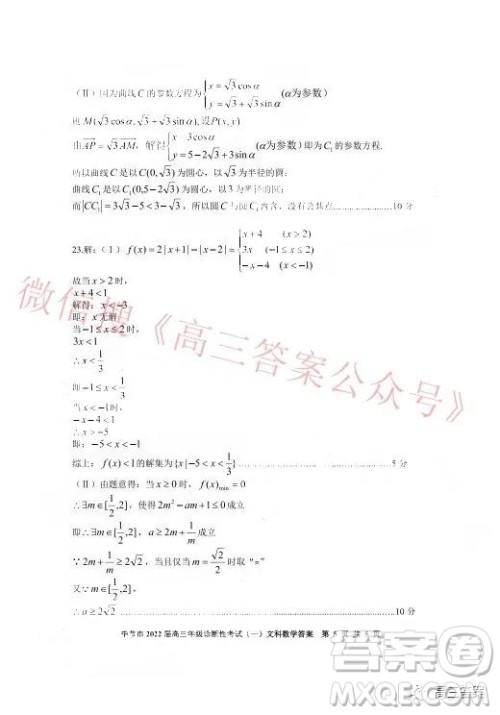 （Ⅱ）因为曲线 C 的参数方程为 { x = √3 cos α  y = √3 + √3 sin α （α为参数）
则 M(√3 cos α, √3 + √3 sin α)，设P(x, y)
由 AP = √3 AM，解得 { x  3cos α  y = 5 − 2√3 + 3sin α （α为参数）即为 C₁ 的参数方程.
所以曲线 C 是以 C(0, √3) 为圆心，以 √3 为半径的圆;
曲线 C₁ 是以 C₁(0,5 − 2√3) 为圆心，以 3 为半径的圆;
而 |CC₁| = 3√3 − 5 < 3 − √3，所以圆 C 与圆 C₁ 内含，没有公共点 10 分
23.解：（Ⅰ） f(x) = 2 | x + 1 | − | x − 2 | = { x + 4 (x > 2)  3x (−1 ≤ x ≤ 2)  −x − 4 (x < −1)
故当 x > 2 时，
x + 4 < 1
解得：x < −3
即：x 无解
当 −1 ≤ x ≤ 2 时，
3x < 1
∴ x < 1/3
即 −1 ≤ x < 1/3
当 x < −1 时，
−x − 4 < 1
∴ x > −5
即：−5 < x < −1
综上：f(x) < 1 的解集为 {x | −5 < x < 1/3} 5 分
（Ⅱ）由题意得：当 x ≥ 0 时，f(x)min = 0
∴ ∃m ∈ [1/2, 2]，使得 2m² − am + 1 ≤ 0 成立
即 ∴ ∃m ∈ [1/2, 2]，a ≥ 2m + 1/m 成立
∵ 2m + 1/m ≥ 2√2 当且仅当 m = √2/2 时取 "="
又 ∵ m ∈ [1/2, 2]，
∴ a ≥ 2√2 10 分
毕节市 2022 届高三年级诊断性考试（一）文科数学答案 第 5 页 共 5 页
微信搜《高三答案公众号》
高三答案